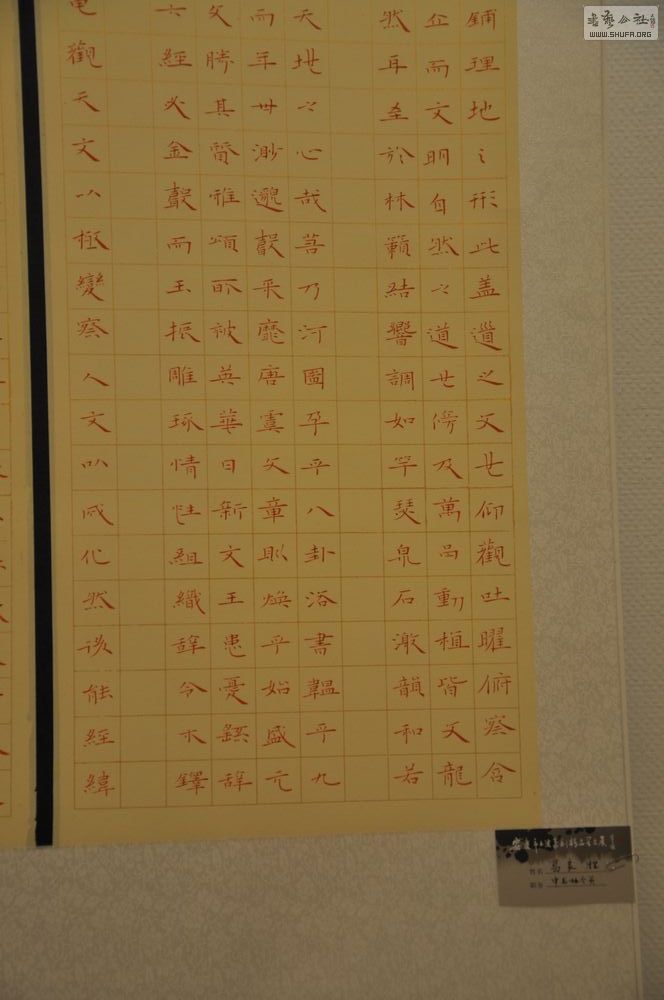 鋪理地之形此盖道之文世仰觀吐曜俯察含
而文明自然之道世傍及萬品動植皆文龍
然耳至於林籟結響調如竽瑟泉石激韻和若
天地之心哉若乃河圖孕乎八卦洛書韞乎九
而年世渺邈聲采靡唐虞文章則煥乎始盛元
文勝其質雅頌所被英華日新文王患憂繇辭
六經必金聲而玉振雕琢情性組織辭令木鐸
觀天文以極變察人文以成化然後能經緯
书艺公社
WWW.SHUFA.ORG